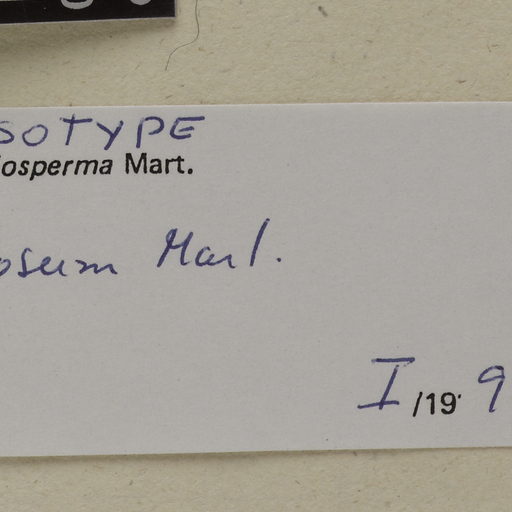 SOTYPE
iosperma Mart.
osum Mart.
I /19 9